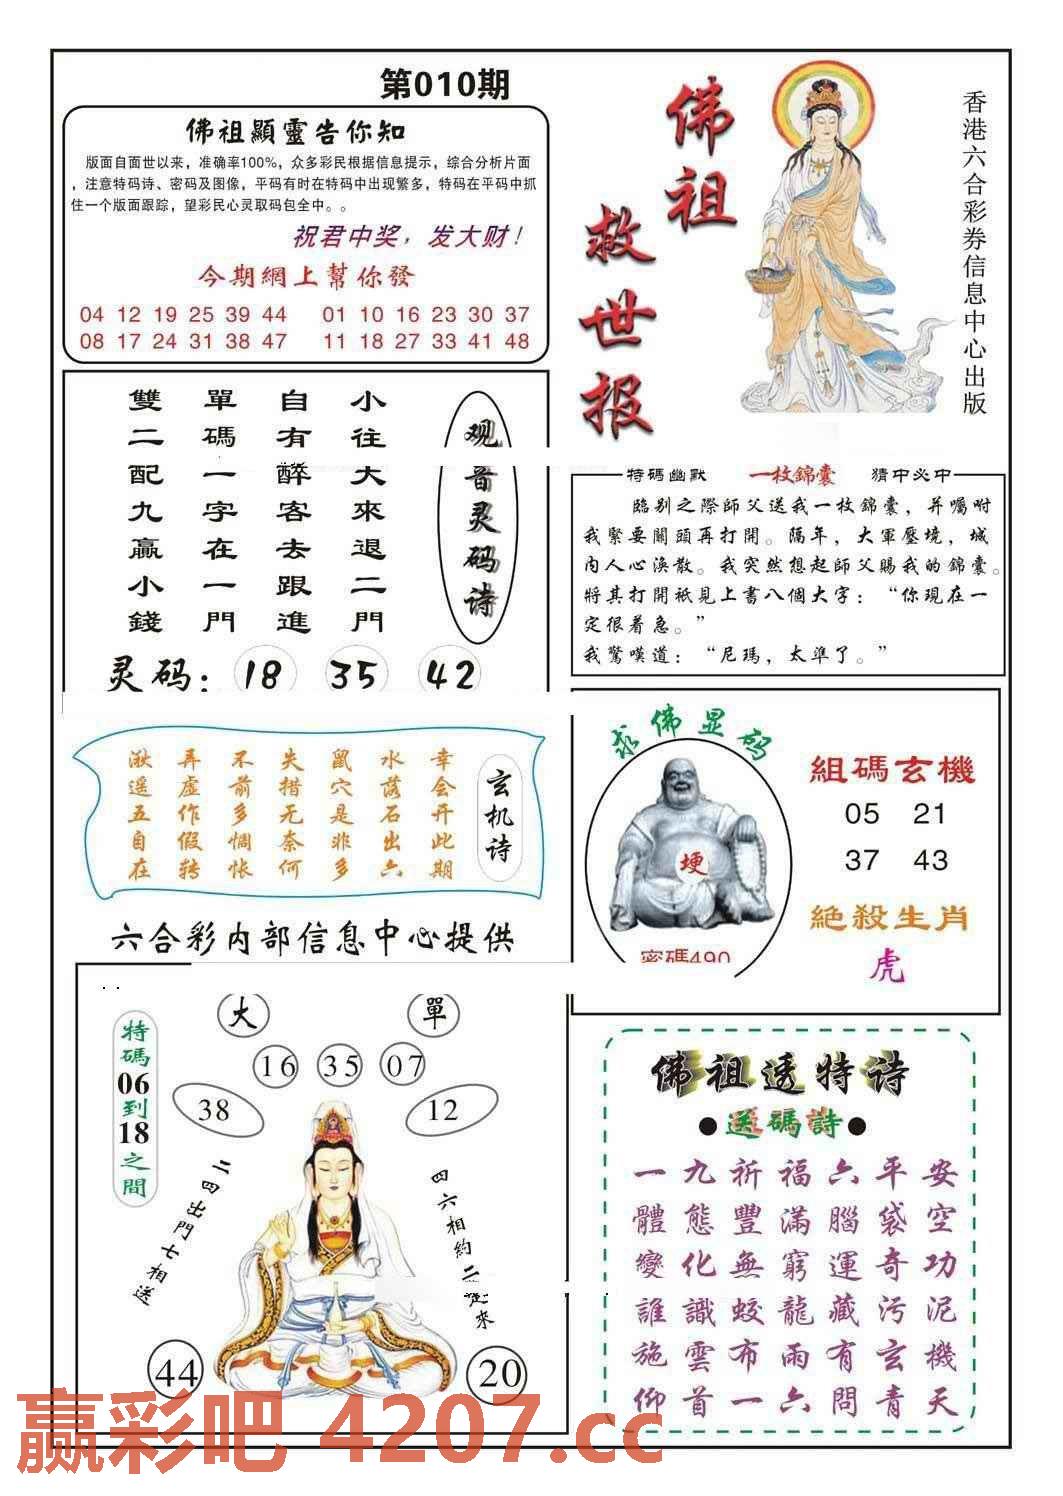 第010期
佛祖顯靈告你知
版面自面世以来，准确率100%，众多彩民根据信息提示，综合分析片面
，注意特码诗、密码及图像，平码有时在特码中出现繁多，特码在平码中抓
住一个版面跟踪，望彩民心灵取码包全中。。
祝君中奖，发大财！
今期網上幫你發
04 12 19 25 39 44 01 10 16 23 30 37
08 17 24 31 38 47 11 18 27 33 41 48
佛祖
救世报
香港六合彩券信息中心出版
观音灵码诗
小往大來退二門
自有醉客去跟進
單碼一字在一門
雙二配九贏小錢
灵码：18 35 42
特碼幽默 一枚錦囊 猜中必中
臨别之際師父送我一枚錦囊，并囑咐
我緊要關頭再打開。隔年，大軍壓境，城
内人心渙散。我突然想起師父賜我的錦囊。
将其打開衹見上書八個大字：“你現在一
定很着急。”
我驚嘆道：“尼瑪，太準了。”
玄机诗
幸会开此期
水落石出六
鼠穴是非多
失措无奈何
不前多惆怅
弄虚作假转
湫遥五自在
求佛显码
埂
密碼490
組碼玄機
05 21
37 43
絕殺生肖
虎
六合彩内部信息中心提供
大 單
16 35 07
38 12
特碼06到18之間
二四出門七相送
四六相約二起來
44 20
佛祖透特诗
●送碼詩●
一九祈福六平安
體態豐滿腦袋空
變化無窮運奇功
誰識蛟龍藏污泥
施雲布雨有玄機
仰首一六問青天
赢彩吧 4207.cc